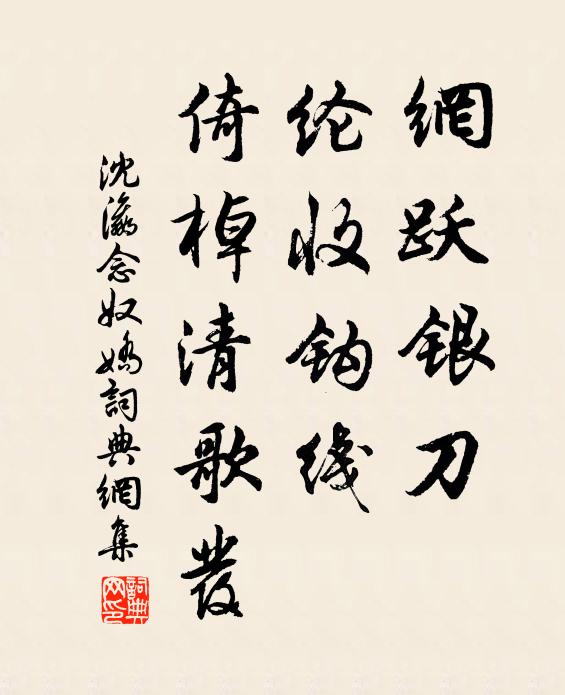 網跃银刀
纶收钩线
倚棹清歌發
沈瀛念奴嬌詞典網集
詞典網印